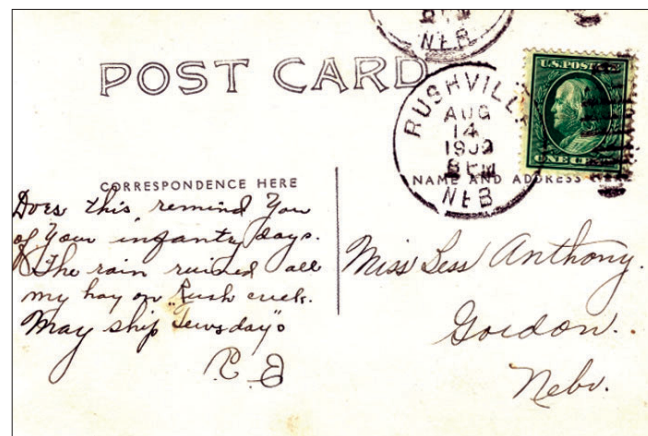 NEB
POST CARD
RUSHVILL
AUG
14
1909
8 PM
NEB
U.S. POST
ONE CE
CORRESPONDENCE HERE
NAME AND ADDRESS
Does this remind You
of Your infanty days.
The rain ruined all
my hay on Rush creek.
May ship Tewsday"
Miss Bess Anthony.
Gordon.
Nebr.